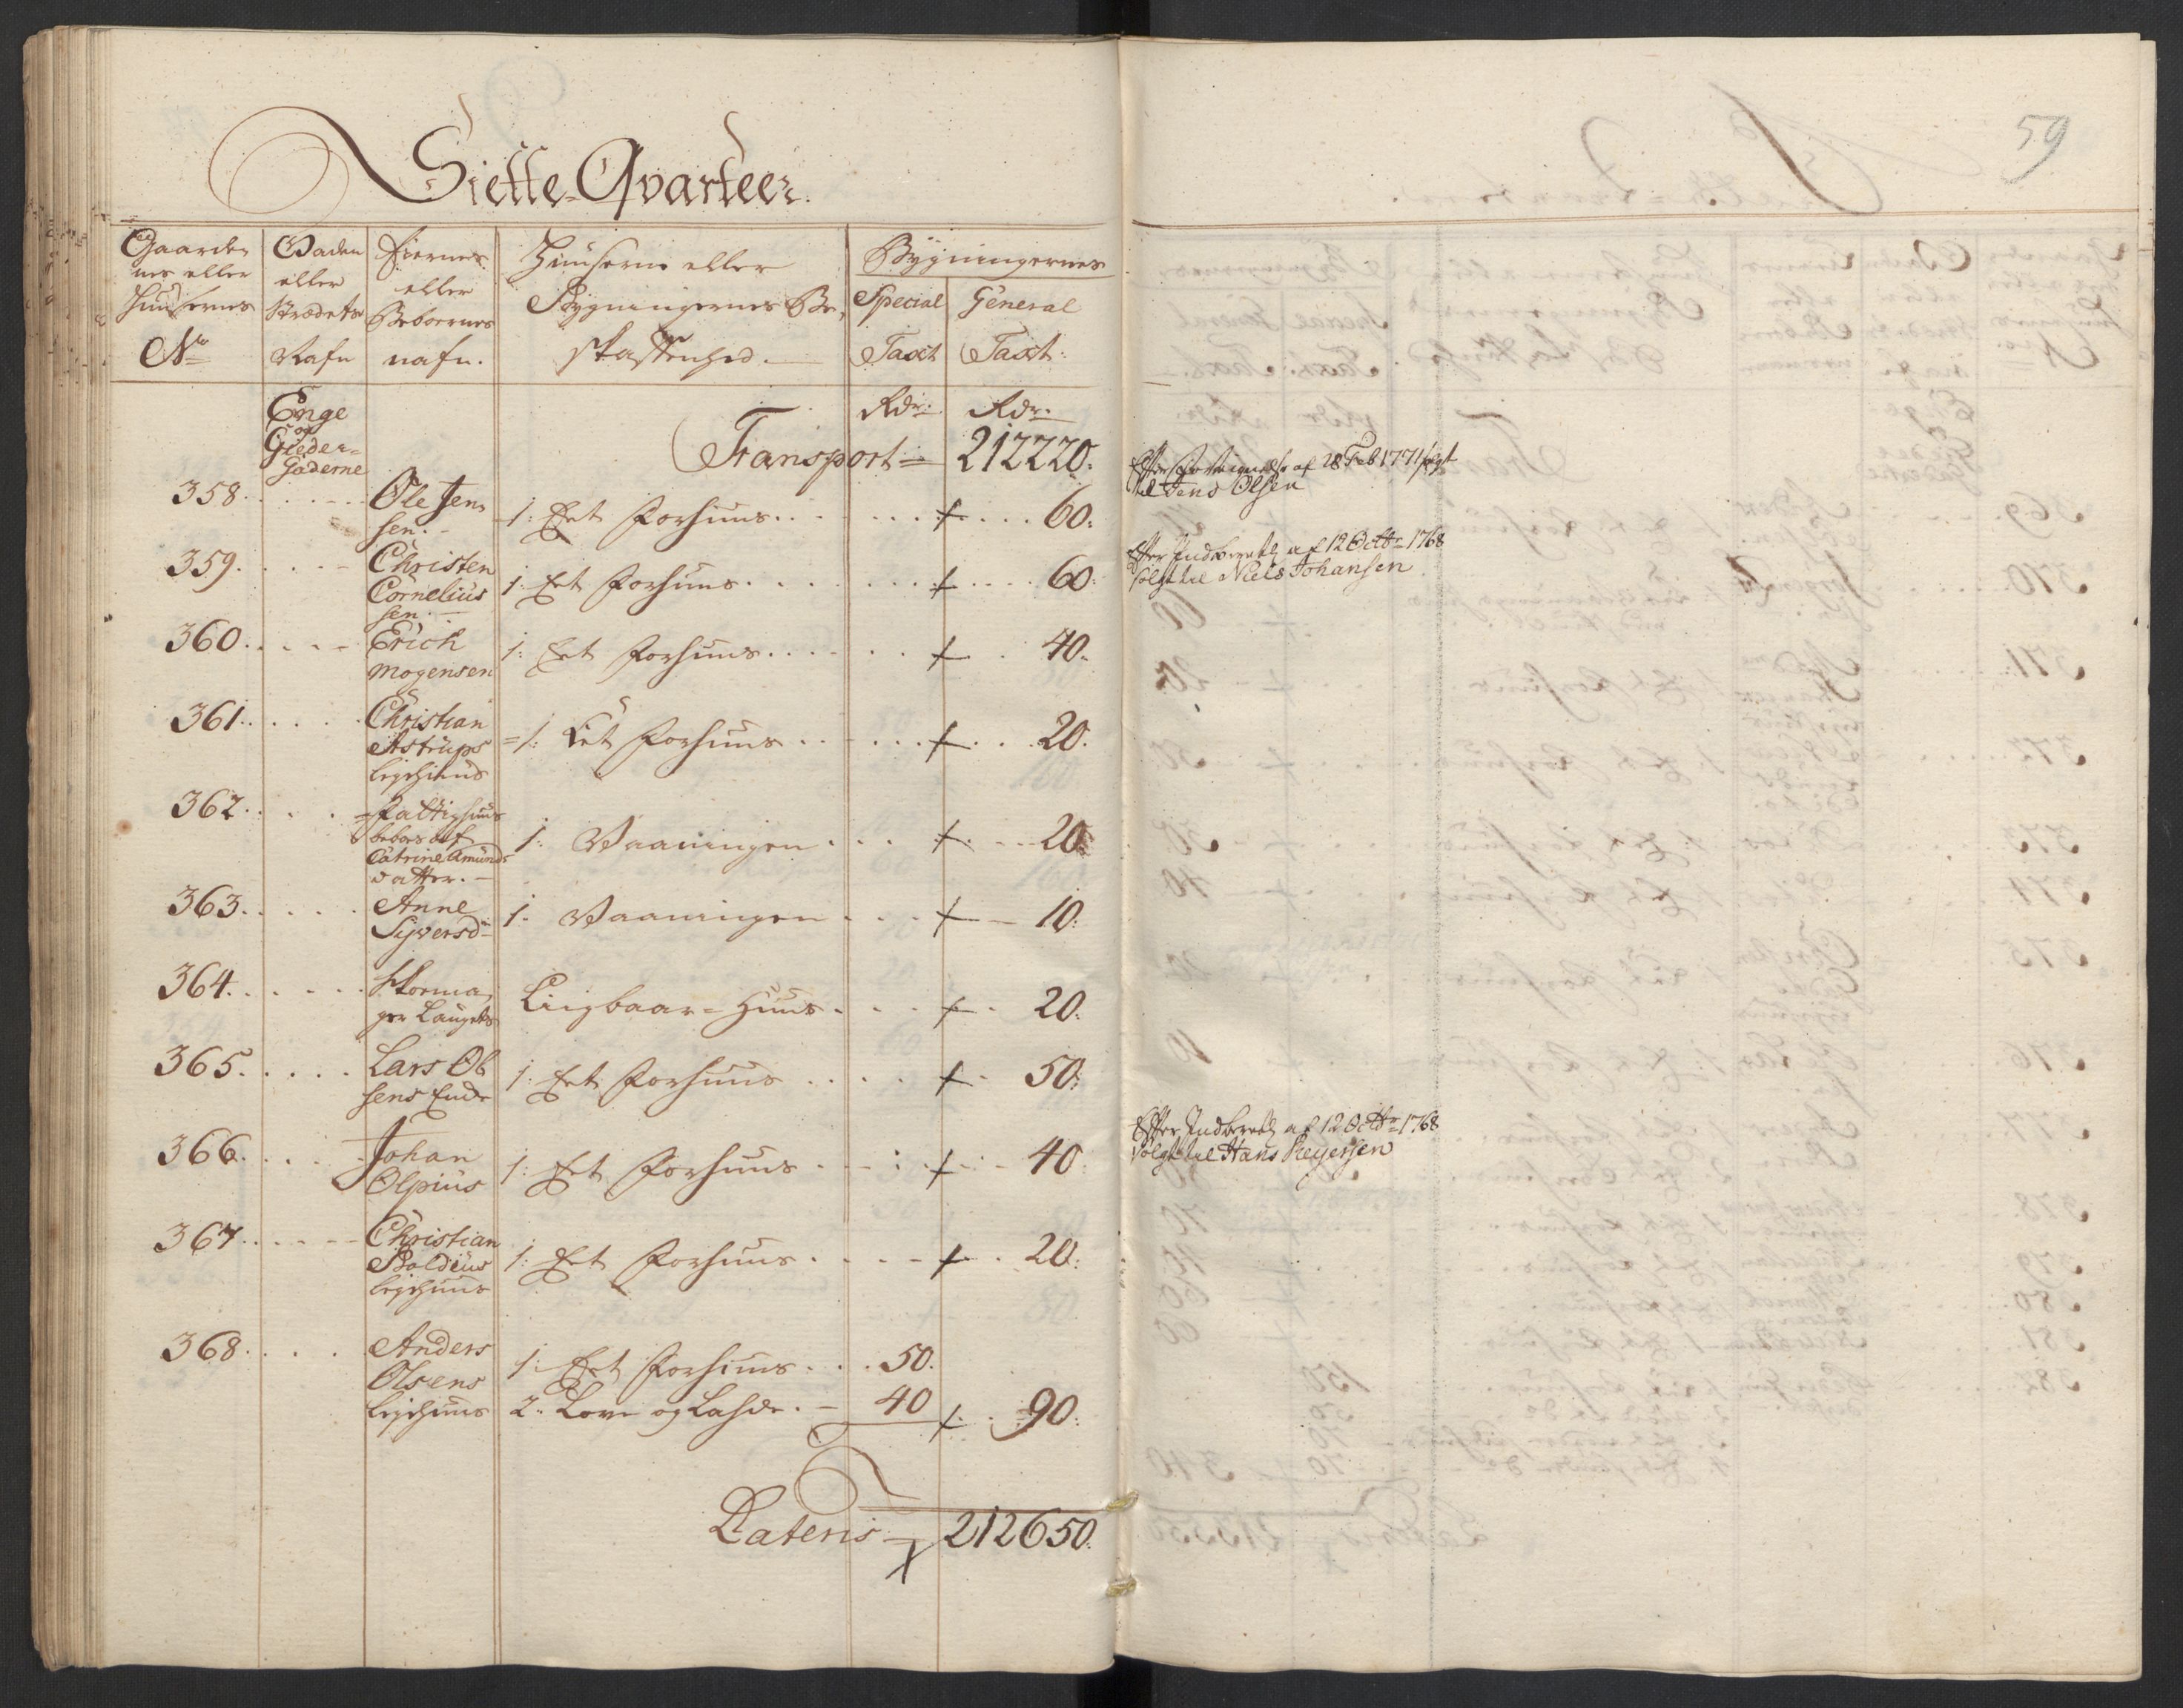 Siette Qvarteer.
Gaarde-
nes eller
Huusernes
No
Gaden
eller
Strædets
Nafn
Eiernes
eller
Beboernes
nafn.
Huuserne eller
Bygningernes Be-
skaffenhed.
Bygningernes
Special
Taxt
General
Taxt:
Enge
og
Gieder-
Gaderne
Rdr: Rdr:
Transport = 212220.
358. Ole Jen-
sen. 1: Eet Forhuus. 60:
359. Christen
Cornelius
sen. 1: Eet Forhuus. 60:
360. Erich
Mogensen 1: Eet Forhuus. 40.
361. Christian
Astrups
lejehuus =1: Eet Forhuus. 20.
362. Fattighuus
beboes af
Catrine Amunds
datter. 1: Vaaningen 20.
363. Anne
Siversdr 1. Vaaningen 10:
364. Skoma-
ger Laugets Liigbaar=Huus. 20.
365. Lars Ol-
sens Enke 1: Eet Forhuus 50:
366. Johan
Olpius 1: Eet Forhuus 40:
367. Christian
Boldeus
lejehuus 1: Eet Forhuus. 20:
368. Anders
Olsens
lejehuus 1: Eet Forhuus. 50.
2: Love og Lahde. 40 90:
Lateris 212650.
59
Efter Forteignelse af 28 Feb 1771 solgt
til Jens Olsen
Efter Indberetg af 12 Octbr 1768
solgt til Niels Johansen
Efter Indberetg af 12 Octbr 1768
solgt til Hans Reyersen